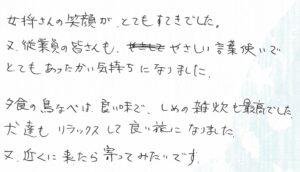 女将さんの笑顔が、とてもすてきでした。
又、従業員の皆さんも、やさしい言葉使いで
とてもあったかい気持ちになりました。
夕食の鳥なべは、良い味で、しめの雑炊も最高でした
犬達もリラックスして良い旅になりました。
又、近くに来たら寄ってみたいです。